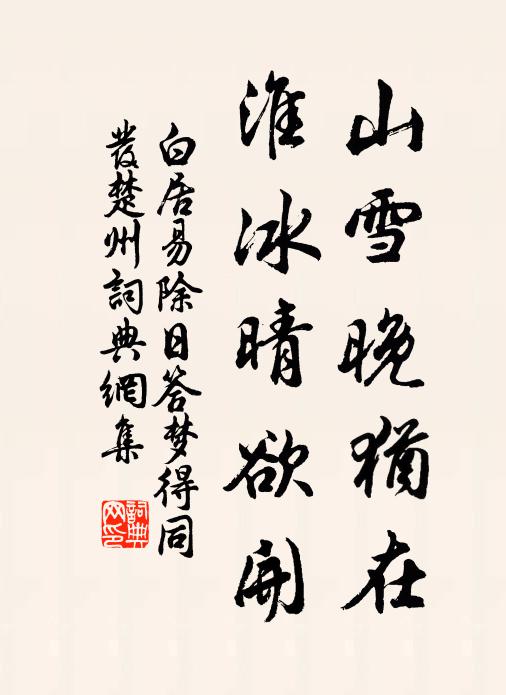 山雪晚猶在
淮冰晴欲開
白居易除日答梦得同
發楚州詞典網集
詞典网印